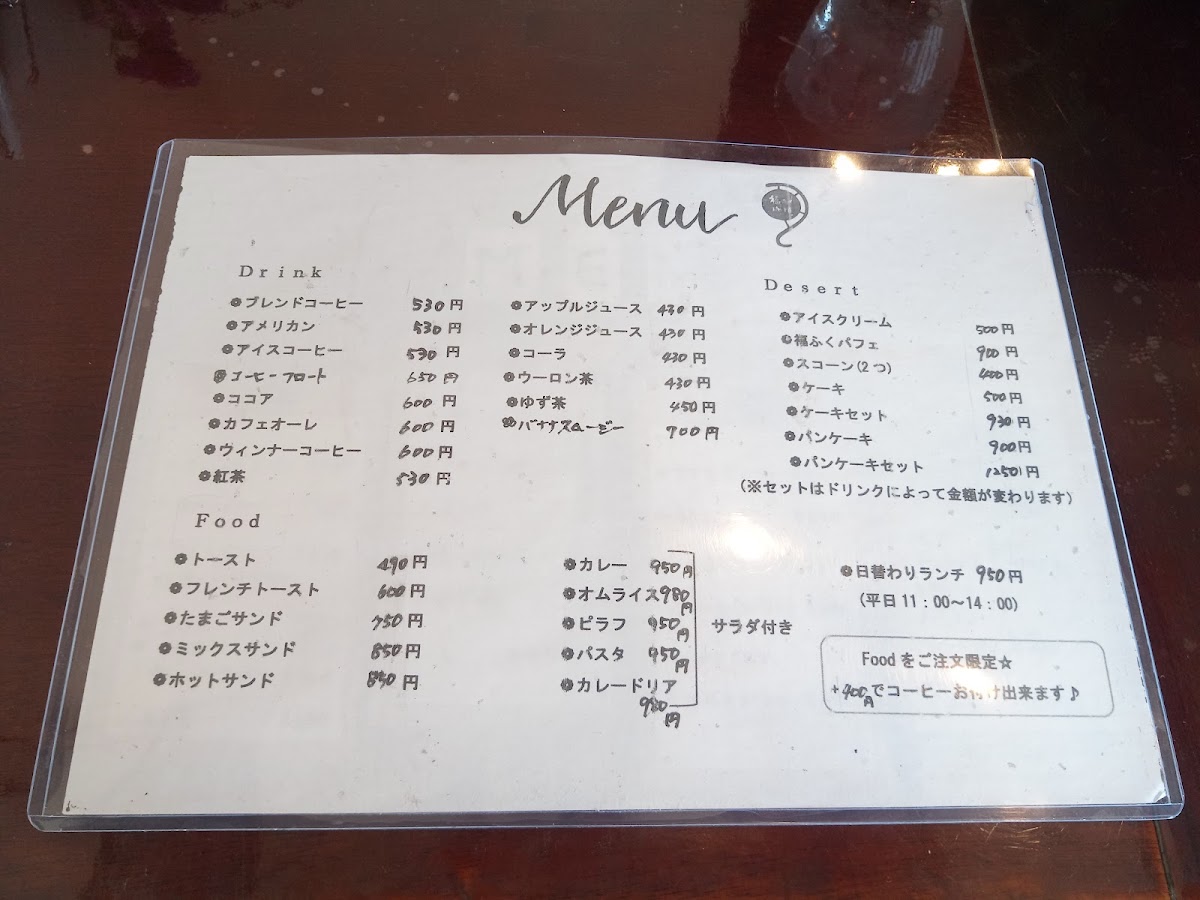 Menu
Drink
ブレンドコーヒー 530円
アメリカン 530円
アイスコーヒー 530円
コーヒーフロート 650円
ココア 600円
カフェオーレ 600円
ウィンナーコーヒー 600円
紅茶 530円
アップルジュース 430円
オレンジジュース 430円
コーラ 430円
ウーロン茶 430円
ゆず茶 450円
バナナスムージー 700円
Desert
アイスクリーム 500円
福ふくパフェ 900円
スコーン(2つ) 400円
ケーキ 500円
ケーキセット 930円
パンケーキ 900円
パンケーキセット 1250円
(※セットはドリンクによって金額が変わります)
Food
トースト 490円
フレンチトースト 600円
たまごサンド 750円
ミックスサンド 850円
ホットサンド 850円
カレー 950円
オムライス 980円
ピラフ 950円
パスタ 950円
カレードリア
980円
サラダ付き
日替わりランチ 950円
(平日11：00～14：00)
Foodをご注文限定☆
+400円でコーヒーお付け出来ます♪